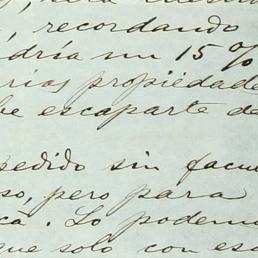 , recordando
dría un 15%
rias propiedade
be escaparte de
pedido sin facul
so, pero para
ca. Lo podemo
que solo con esc